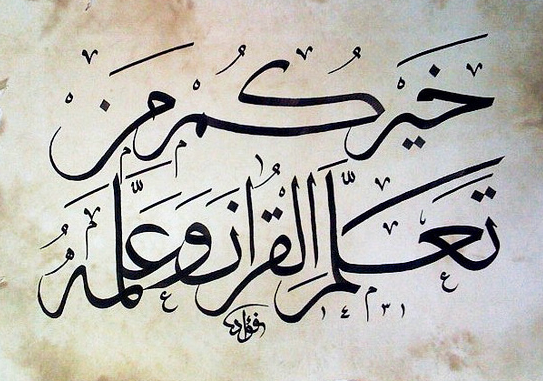 خَيْرُكُمْ مَنْ
تَعَلَّمَ الْقُرْاٰنَ وَعَلَّمَهُ
فؤاد
١٤٣١